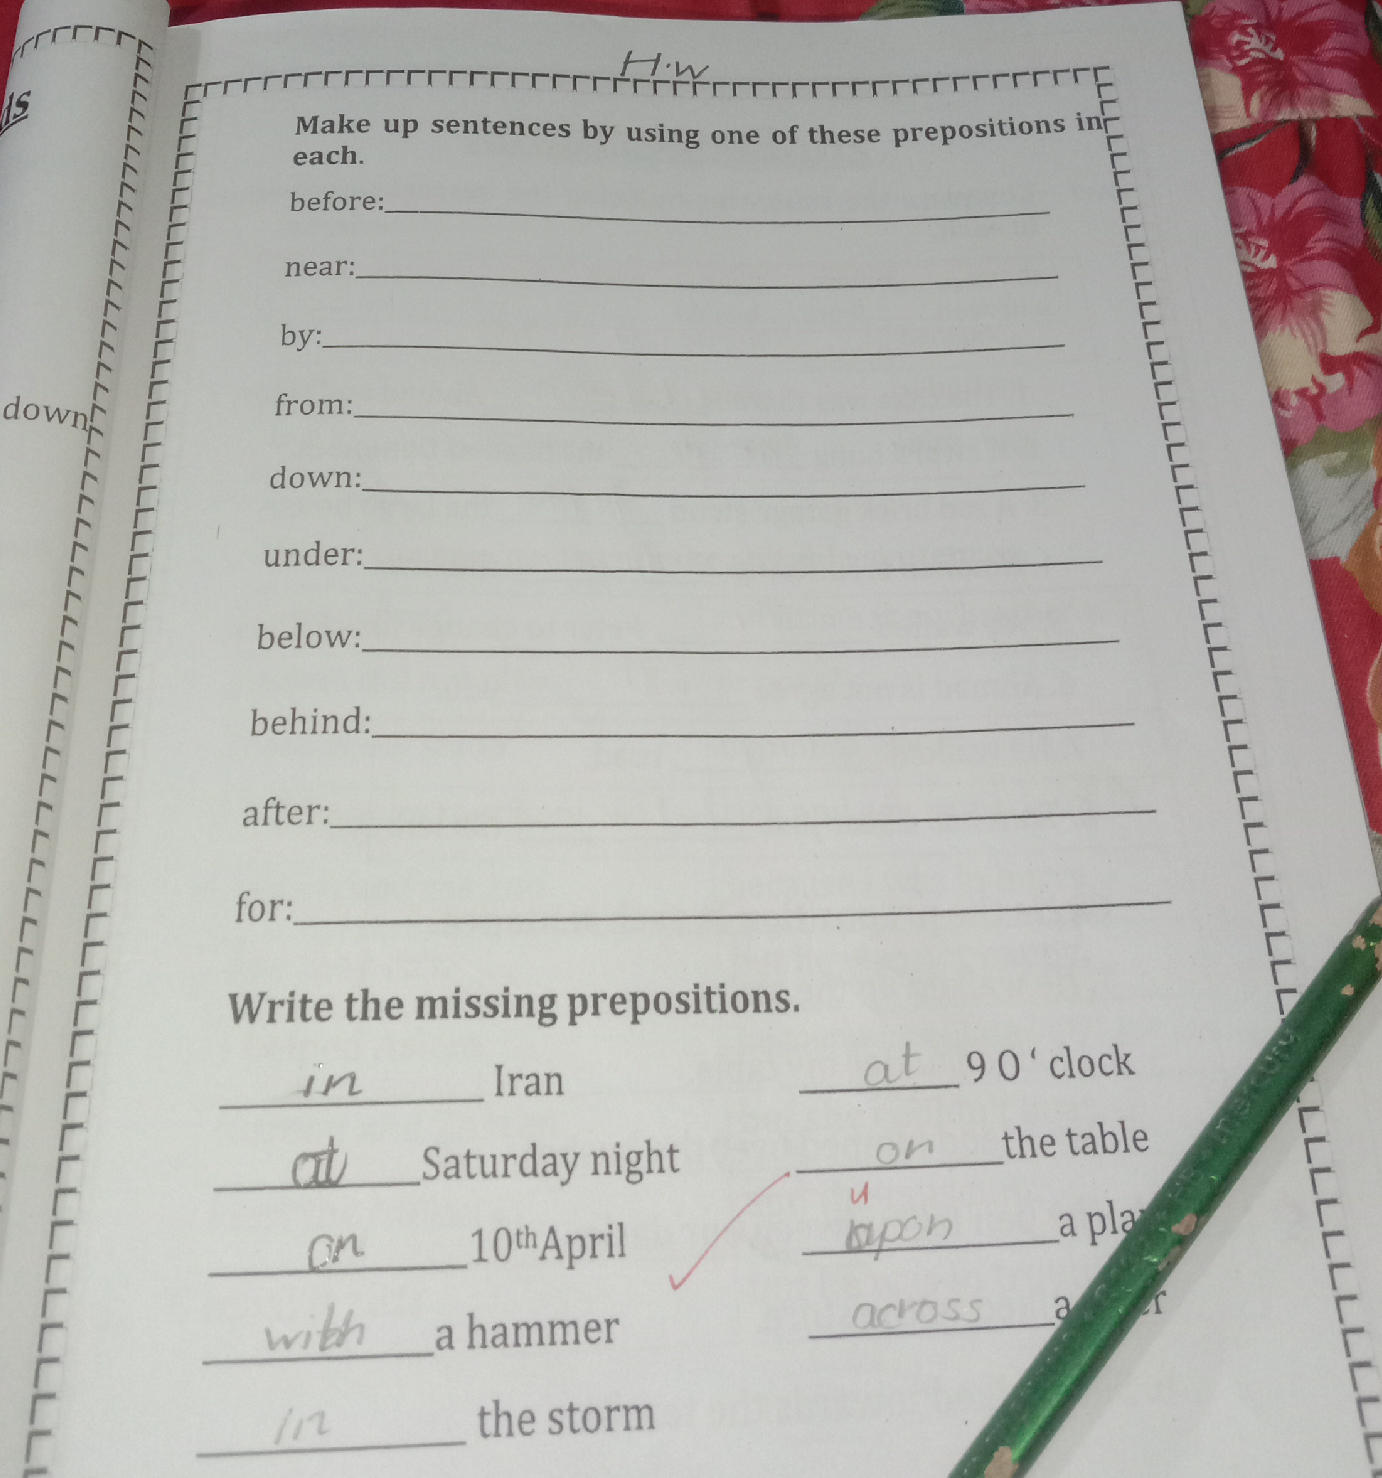 H.W
Make up sentences by using one of these prepositions in
each.
before:
near:
by:
from:
down
down:
under:
below:
behind:
after:
for:
Write the missing prepositions.
in Iran
at 9 0 ‘ clock
at Saturday night
on the table
on 10th April
u
upon a
with a hammer
across a
in the storm